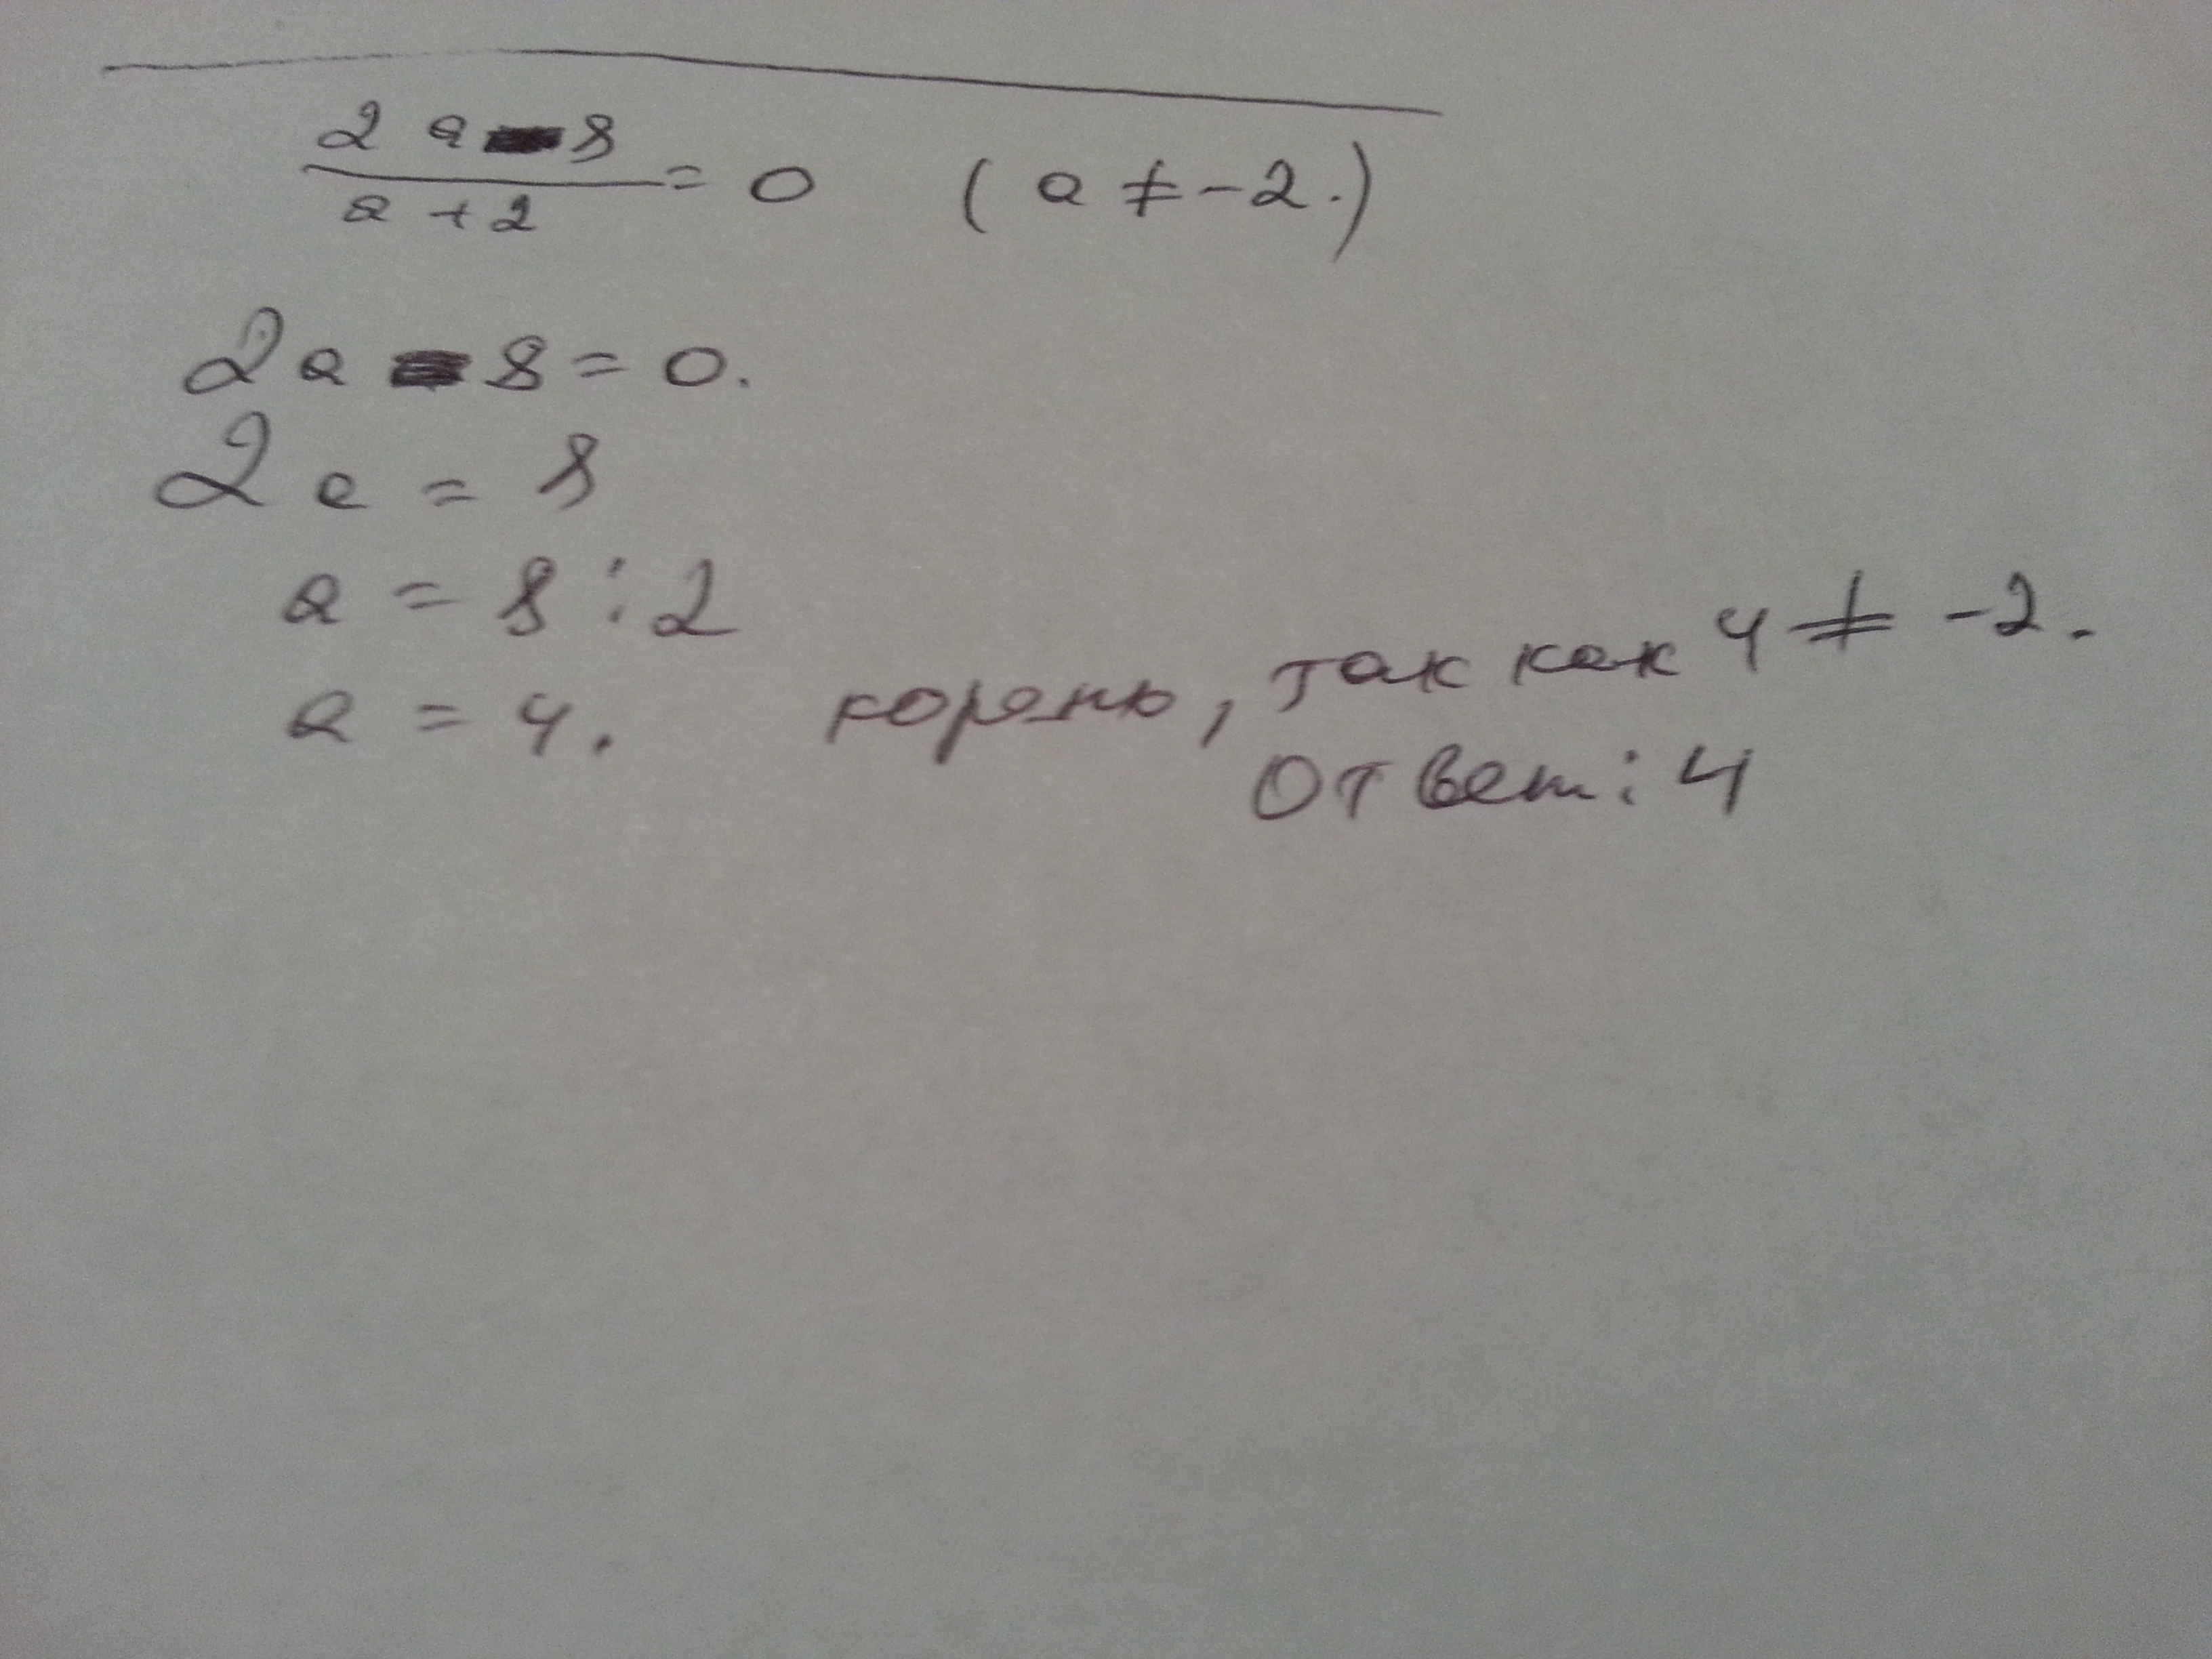 2a - 8
a + 2 = 0 (a ≠ -2.)
2a - 8 = 0.
2a = 8
a = 8 : 2
a = 4. корень, так как 4 ≠ -2.
Ответ: 4